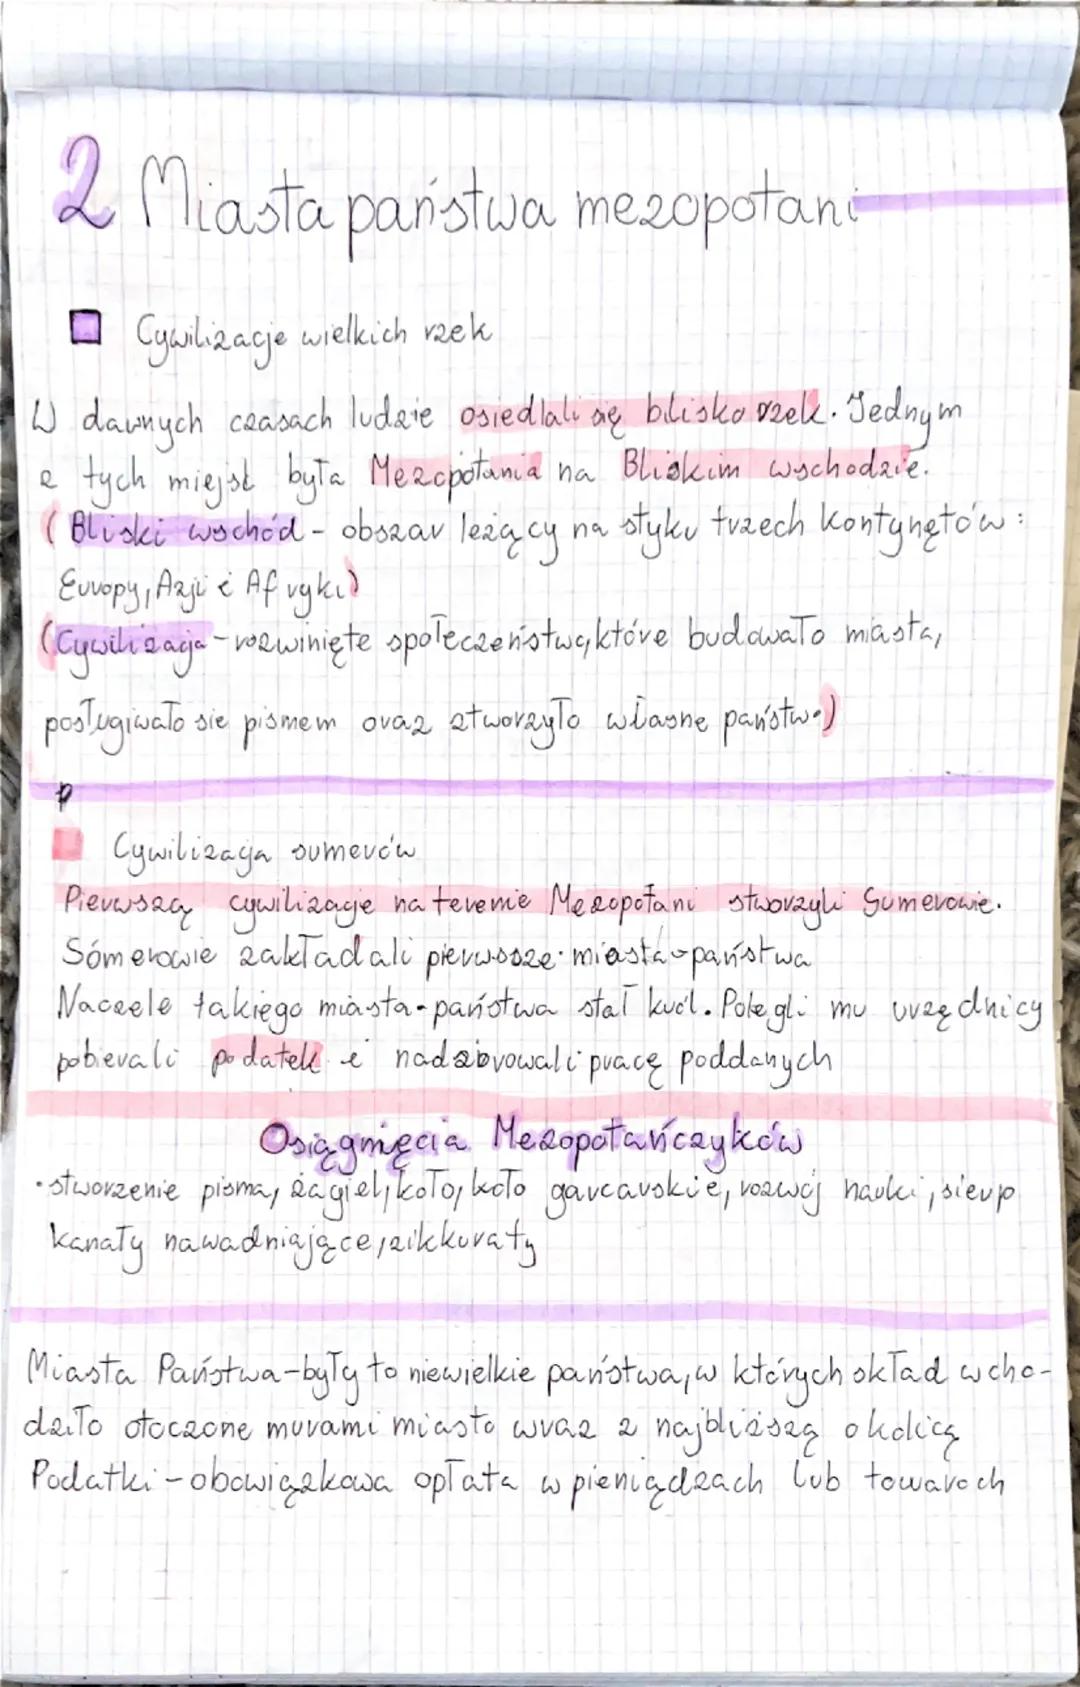 2 Miasta państwa mezopotani
Cywilizacje wielkich rzek
W dawnych czasach ludzie osiedlali się blisko rzek. Jednym
z tych miejsc była Mezopotania na Bliskim wschodzie.
(Bliski wschód - obszar leżący na styku trzech kontynętów:
Europy, Azji i Afryki)
(Cywilizacja - rozwinięte społeczeństwo, które budowało miasta,
posługiwało sie pismem oraz stworzyło własne państwo)
Cywilizacja sumerów
Pierwszą cywilizacje na terenie Mezopotani stworzyli Sumerowie.
Sómerowie zakładali pierwsze miasta-państwa
Naczele takiego miasta-państwa stał król. Polegli mu urzędnicy
pobierali podatek i nadzorowali pracę poddanych
Osiągnięcia Mezopotańczyków
• stworzenie pisma, żagiel, koło, koło garcarskie, rozwój nauki, sierp
kanały nawadniające, zikkuraty
Miasta Państwa - były to niewielkie państwa, w których skład wcho-
dziło otoczone murami miasto wraz z najbliższą okolicą
Podatki - obowiązkowa opłata w pieniądzach lub towarach